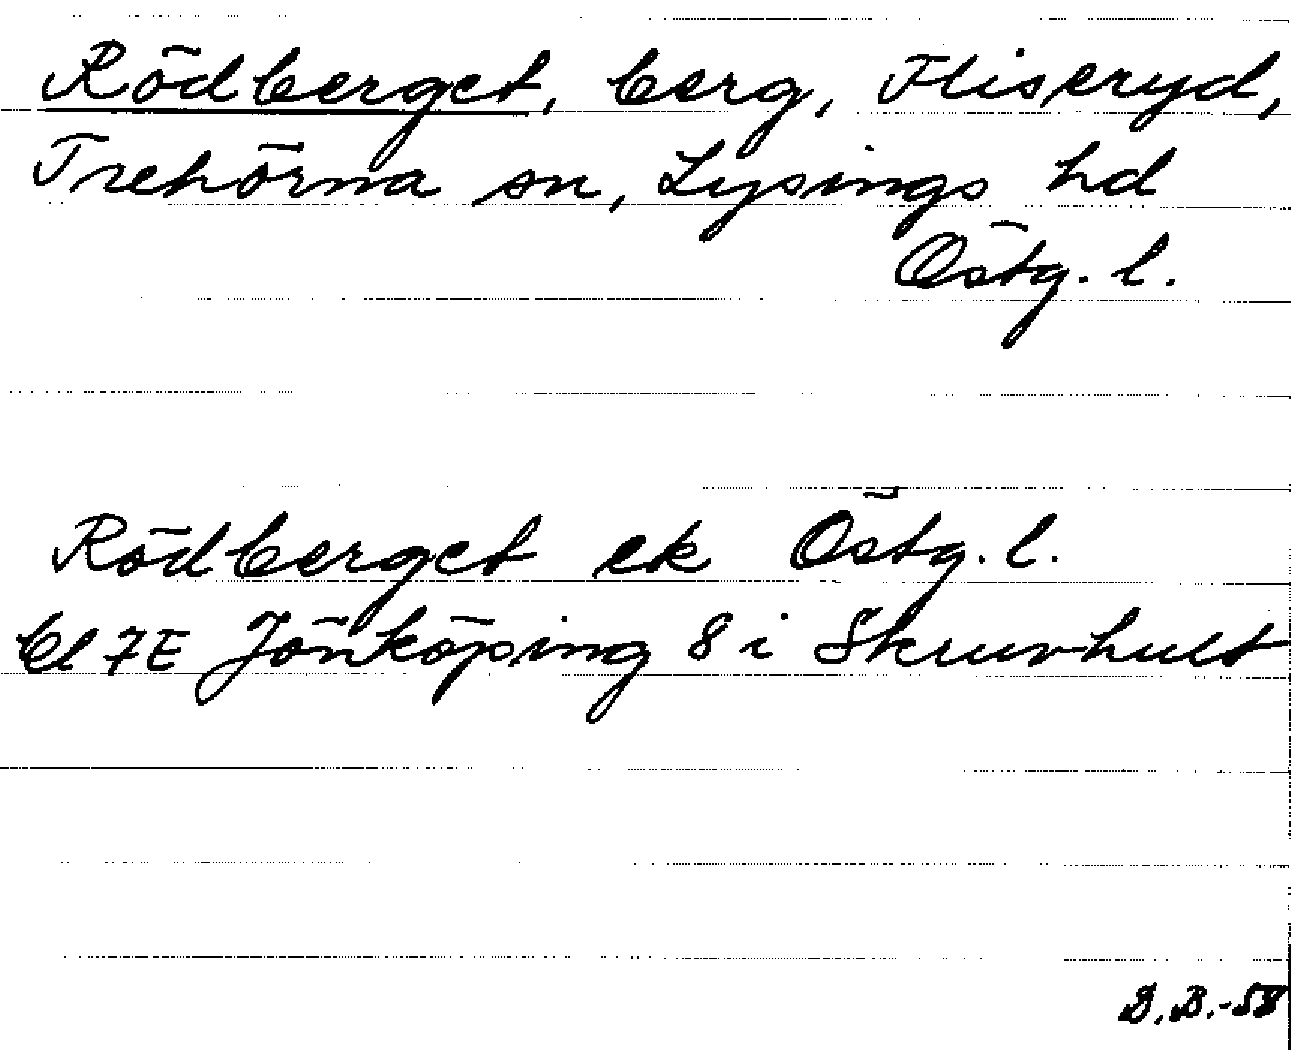 Rödberget, berg, Fliseryd,
Trehörna sn, Lysings hd
Östg. l.
Rödberget ek Östg. l.
bl 7E Jönköping 8 i Skruvhult
B.B.-58